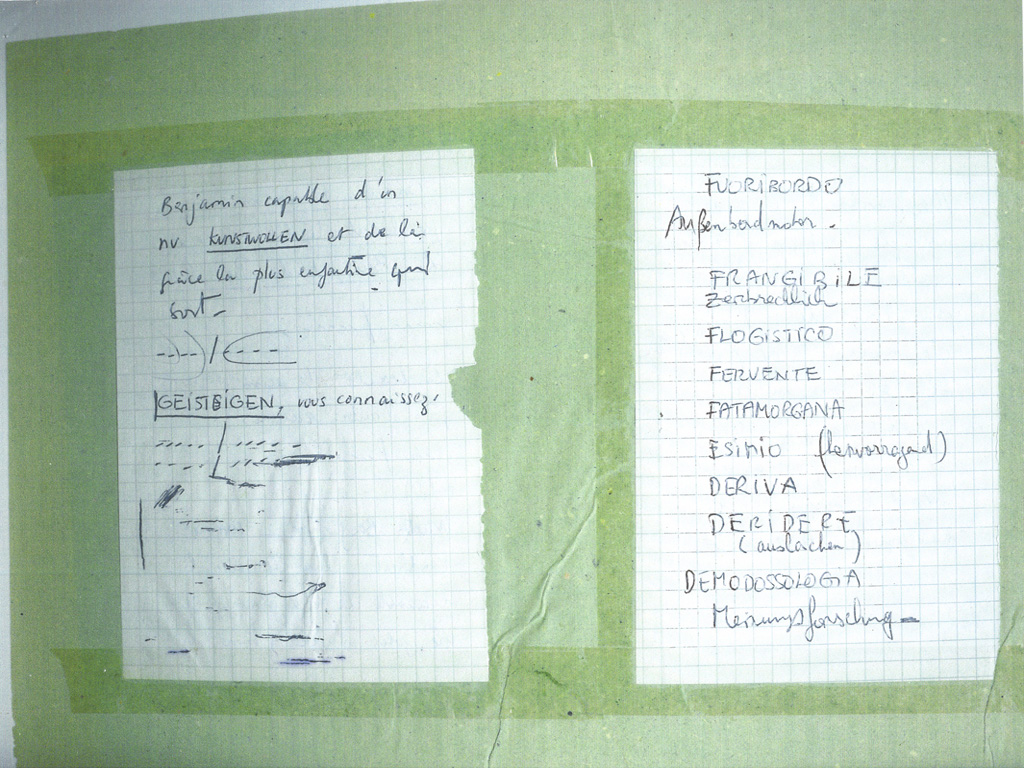 Benjamin capable d'un
nv KUNSTWOLLEN et de la
grâce la plus enfantine qui
sort.
GEISTEIGEN, vous connaissez.
FUORIBORDO
Außenbordmotor.
FRANGIBILE
Zerbrechlich
FLOGISTICO
FERVENTE
FATAMORGANA
ESIMIO (hervorragend)
DERIVA
DERIDERE
(auslachen)
DEMODOSSOLOGIA
Meinungsforschung